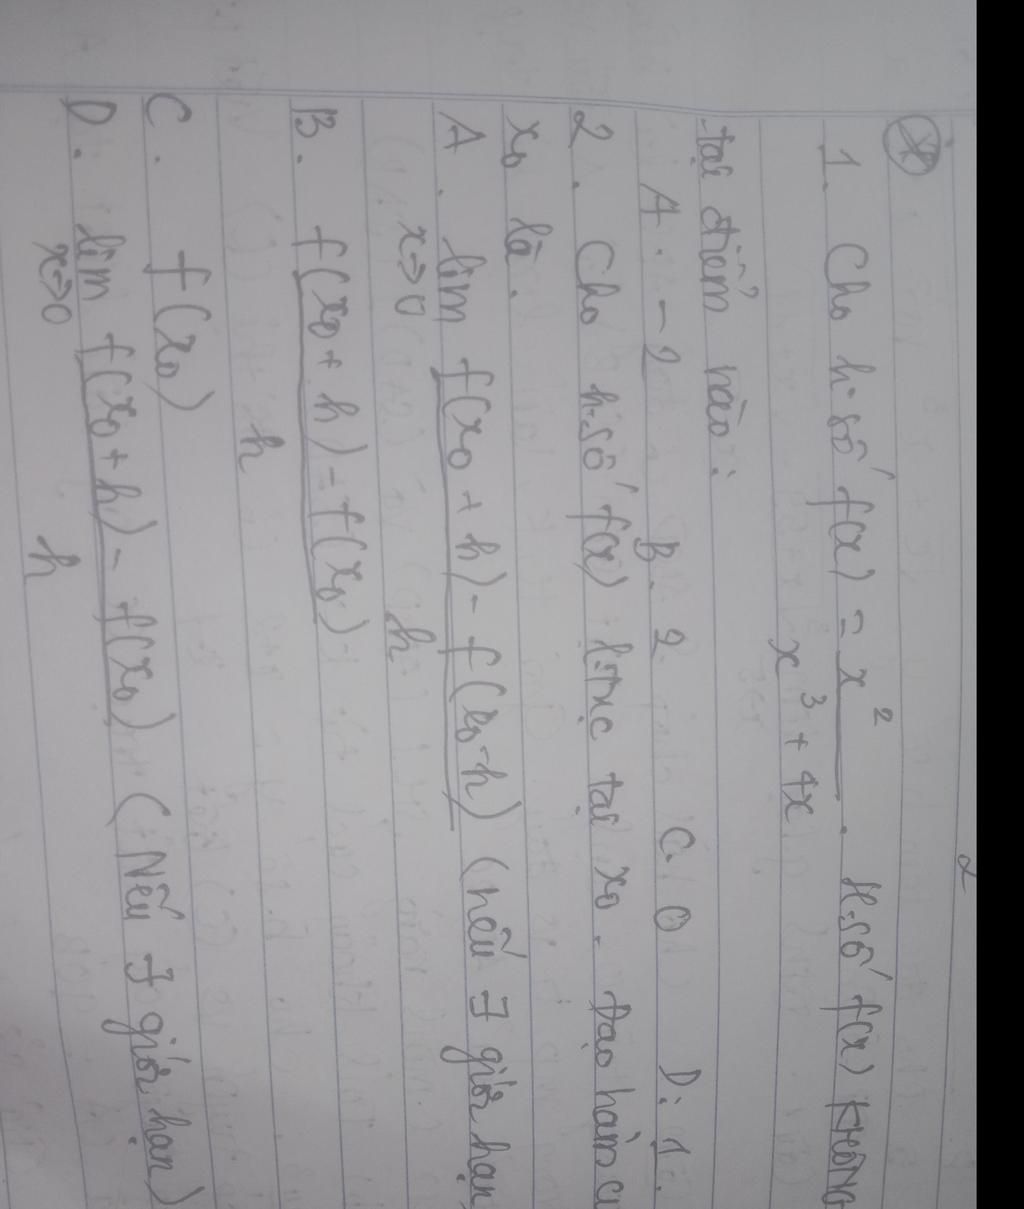 2
1. Cho h.số f(x) = x²
x³ + 4x
. H.số f(x) KHÔNG
tại điểm nào:
A. -2 B. 2 C. 0 D. 1.
2. Cho h.số f(x) l.tục tại x₀. Đạo hàm củ
x₀ là.
A. lim f(x₀ + h) - f(x₀-h) (nếu ∃ giới hạn
x→0 h
B. f(x₀ + h) - f(x₀)
h
C. f(x₀)
D. lim f(x₀ + h) - f(x₀) (Nếu ∃ giới hạn)
x→0 h